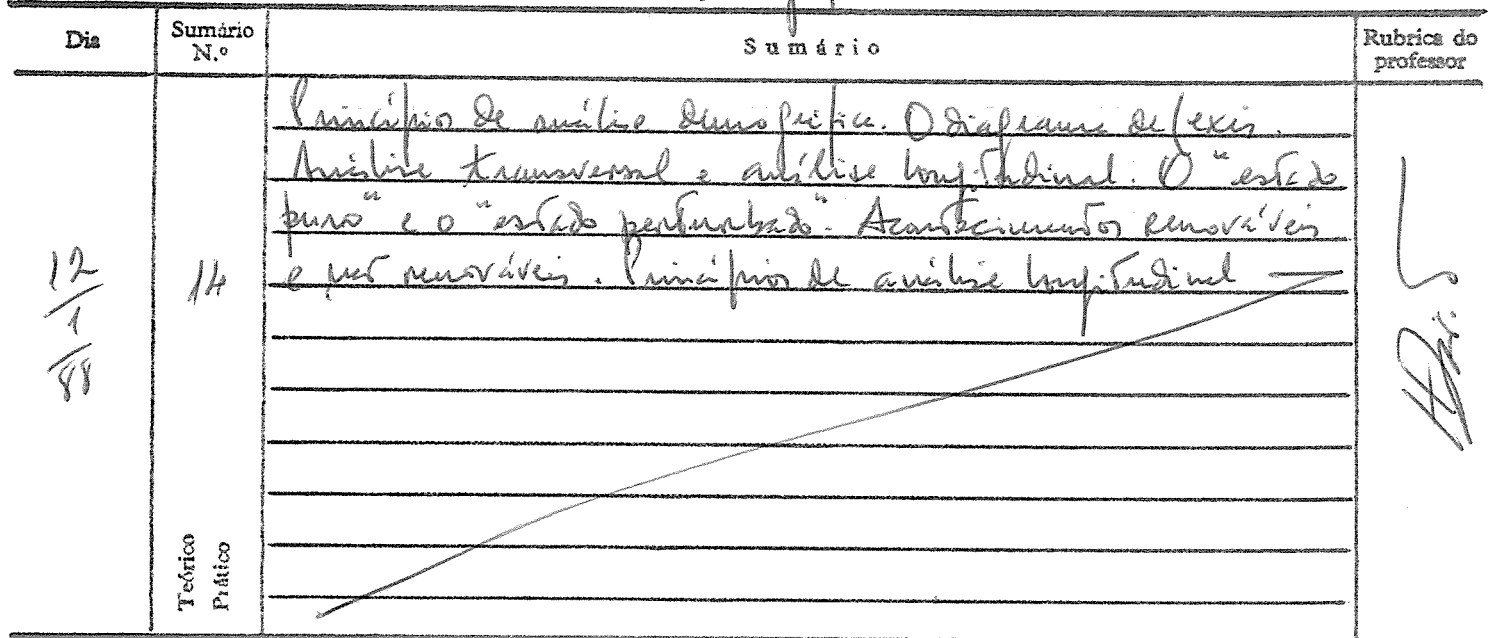 Dia
Sumário N.º
Sumário
Rubrica do professor
Princípios de análise demográfica. O diagrama de Lexis.
Análise transversal e análise longitudinal. O "estado
puro" e o "estado perturbado". Acontecimentos renováveis
e não renováveis. Princípios de análise longitudinal
12/1/88
14
Teórico
Prático